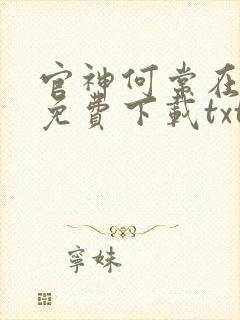 官神何常在
免費下載txt
寧妹